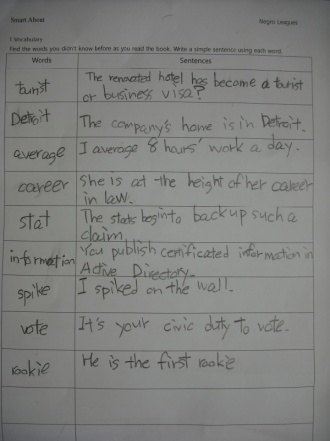 Smart About
Negro Leagues
I. Vocabulary
Find the words you didn't know before as you read the book. Write a simple sentence using each word.
Words
Sentences
tourist
The renovated hotel has become a tourist
or business visa?
Detroit
The company's home is in Detroit.
average
I average 8 hours' work a day.
career
She is at the height of her career
in law.
stat
The stats begin to back up such a
claim.
information
You publish certificated information in
Active Directory.
spike
I spiked on the wall.
vote
It's your civic duty to vote.
rookie
He is the first rookie